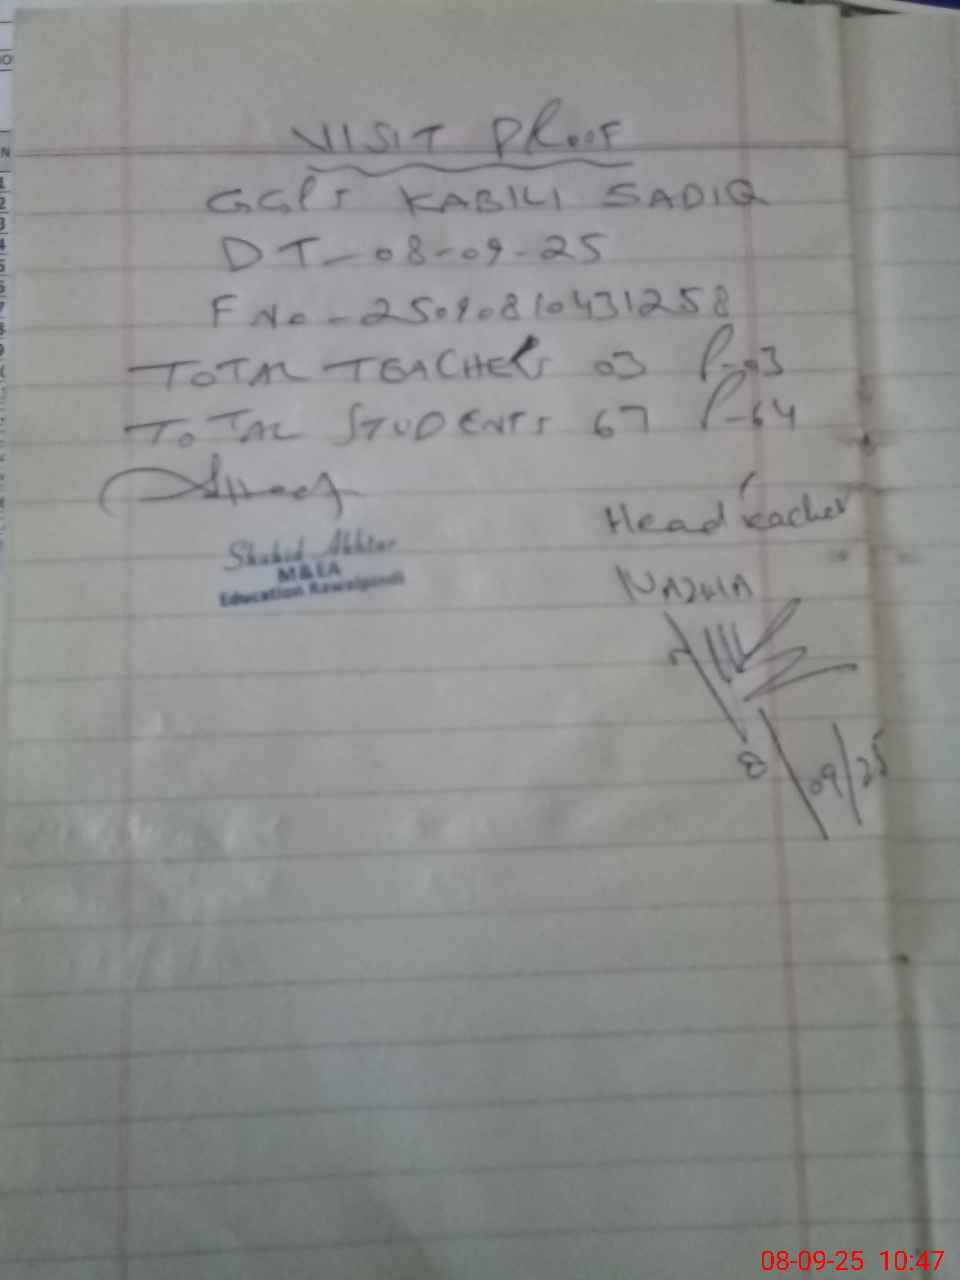 VISIT PROOF
GGPS KABILI SADIQ
DT-08-09-25
F No-25090810431258
TOTAL TEACHERS 03 P-03
TOTAL STUDENTS 67 P-64
Head Teacher
Shahid Akhtar
M&EA
Education Rawalpindi
8/09/25
08-09-25 10:47